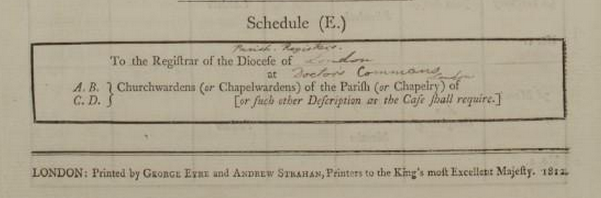 Schedule (E.)
Parish Registers.
To the Regiſtrar of the Dioceſe of London
at Doctors Commons London
A. B. } Churchwardens (or Chapelwardens) of the Pariſh (or Chapelry) of
C. D. } [or ſuch other Deſcription as the Caſe ſhall require.]
LONDON: Printed by GEORGE EYRE and ANDREW STRAHAN, Printers to the King's moſt Excellent Majeſty. 1812.